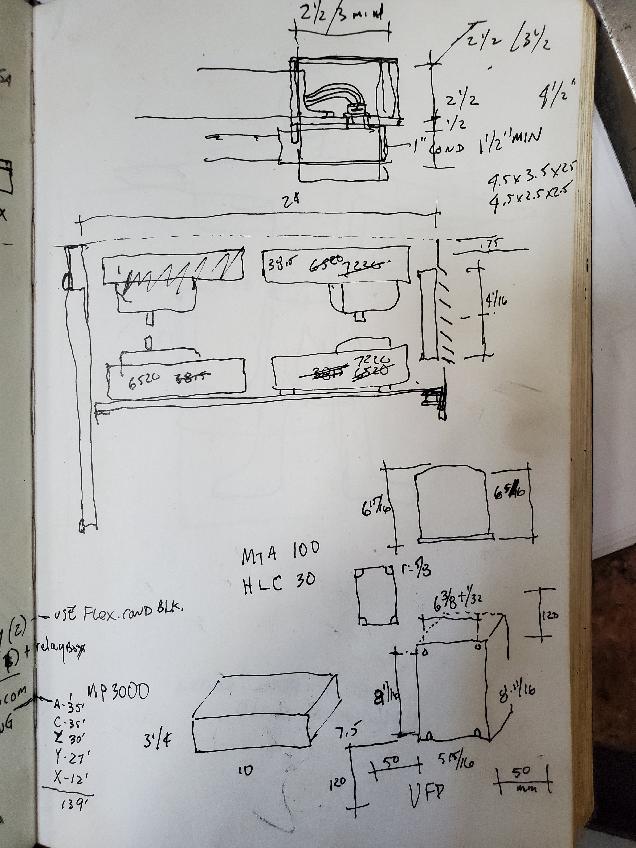 2 1/2 / 3 MIN
2 1/2 / 3 1/2
2 1/2
4 1/2"
1/2
1" COND 1 1/2" MIN
4.5 x 3.5 x 25
4.5 x 2.5 x 2.5
24
.75
3815 6520 7220
4 1/16
7220
6520 3815 3815 6520
6 5/16
MTA 100
HLC 30
6 3/8 + 1/32
120
USE FLEX. COND BLK.
+ relay box
MP3000
A-35'
C-35'
Z 30'
Y-27'
X-12'
139'
3 1/4
10
7.5
8 11/16
50
5 15/16
120
VFD
50
mm